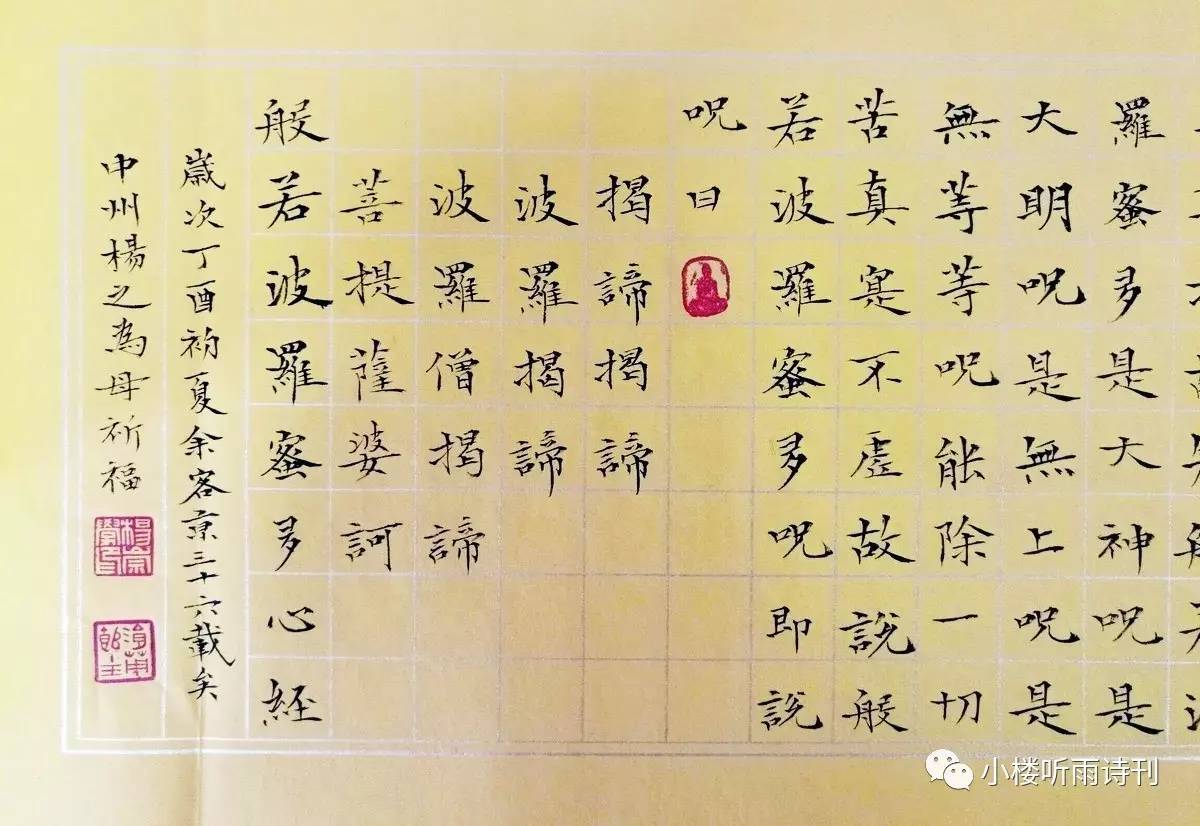 羅蜜多是大神呪是
大明呪是無上呪是
無等等呪能除一切
苦真寔不虛故說般
若波羅蜜多呪即說
呪曰
揭諦揭諦
波羅揭諦
波羅僧揭諦
菩提薩婆訶
般若波羅蜜多心経
歲次丁酉初夏余客京三十六載矣
中州楊之為母祈福
小楼听雨诗刊